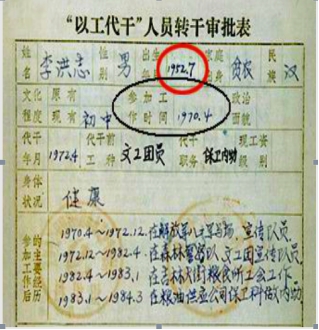 “以工代干”人员转干审批表
姓名 李洪志 性别 男 出生年 1952.7 家庭出身 贫农 民族 汉
文化程度 原有 现有 初中 参加工作时间 1970.4 政治面貌
代干年月 1972.4 代干前工种 文工团员 代干职务 保卫内勤 现工资级别
身体状况 健康
参加工作后的主要经历
1970.4～1972.12.在解放军八一军马场、宣传队员.
1972.12～1982.4在森林警察总队、文工团宣传队员.
1982.4～1983.1在吉林大街粮民所工会工作
1983.1～1984.3在粮油供应公司保卫科做内勤